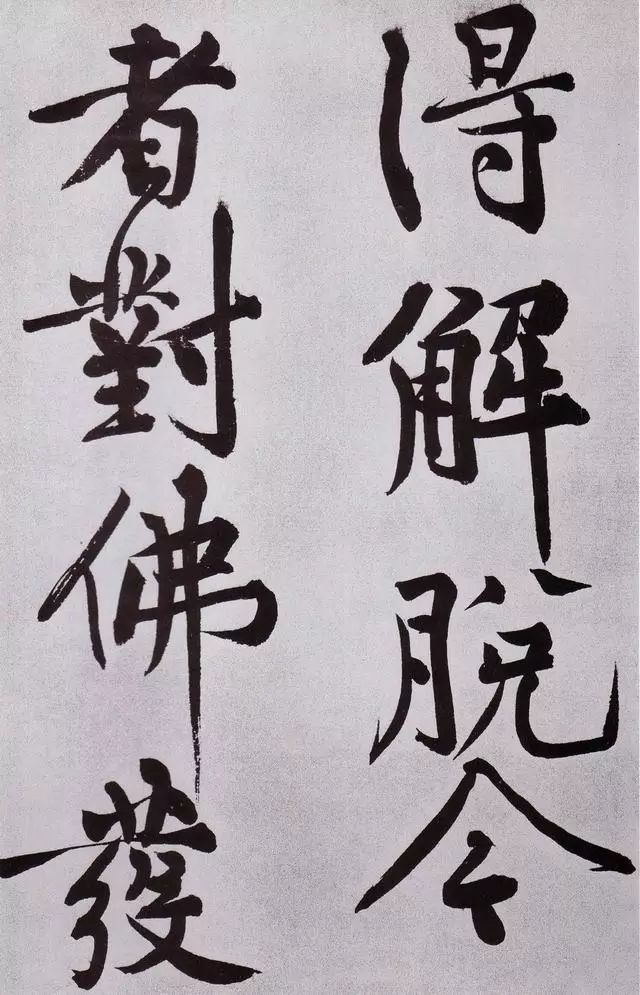 得解脫今
者對佛發